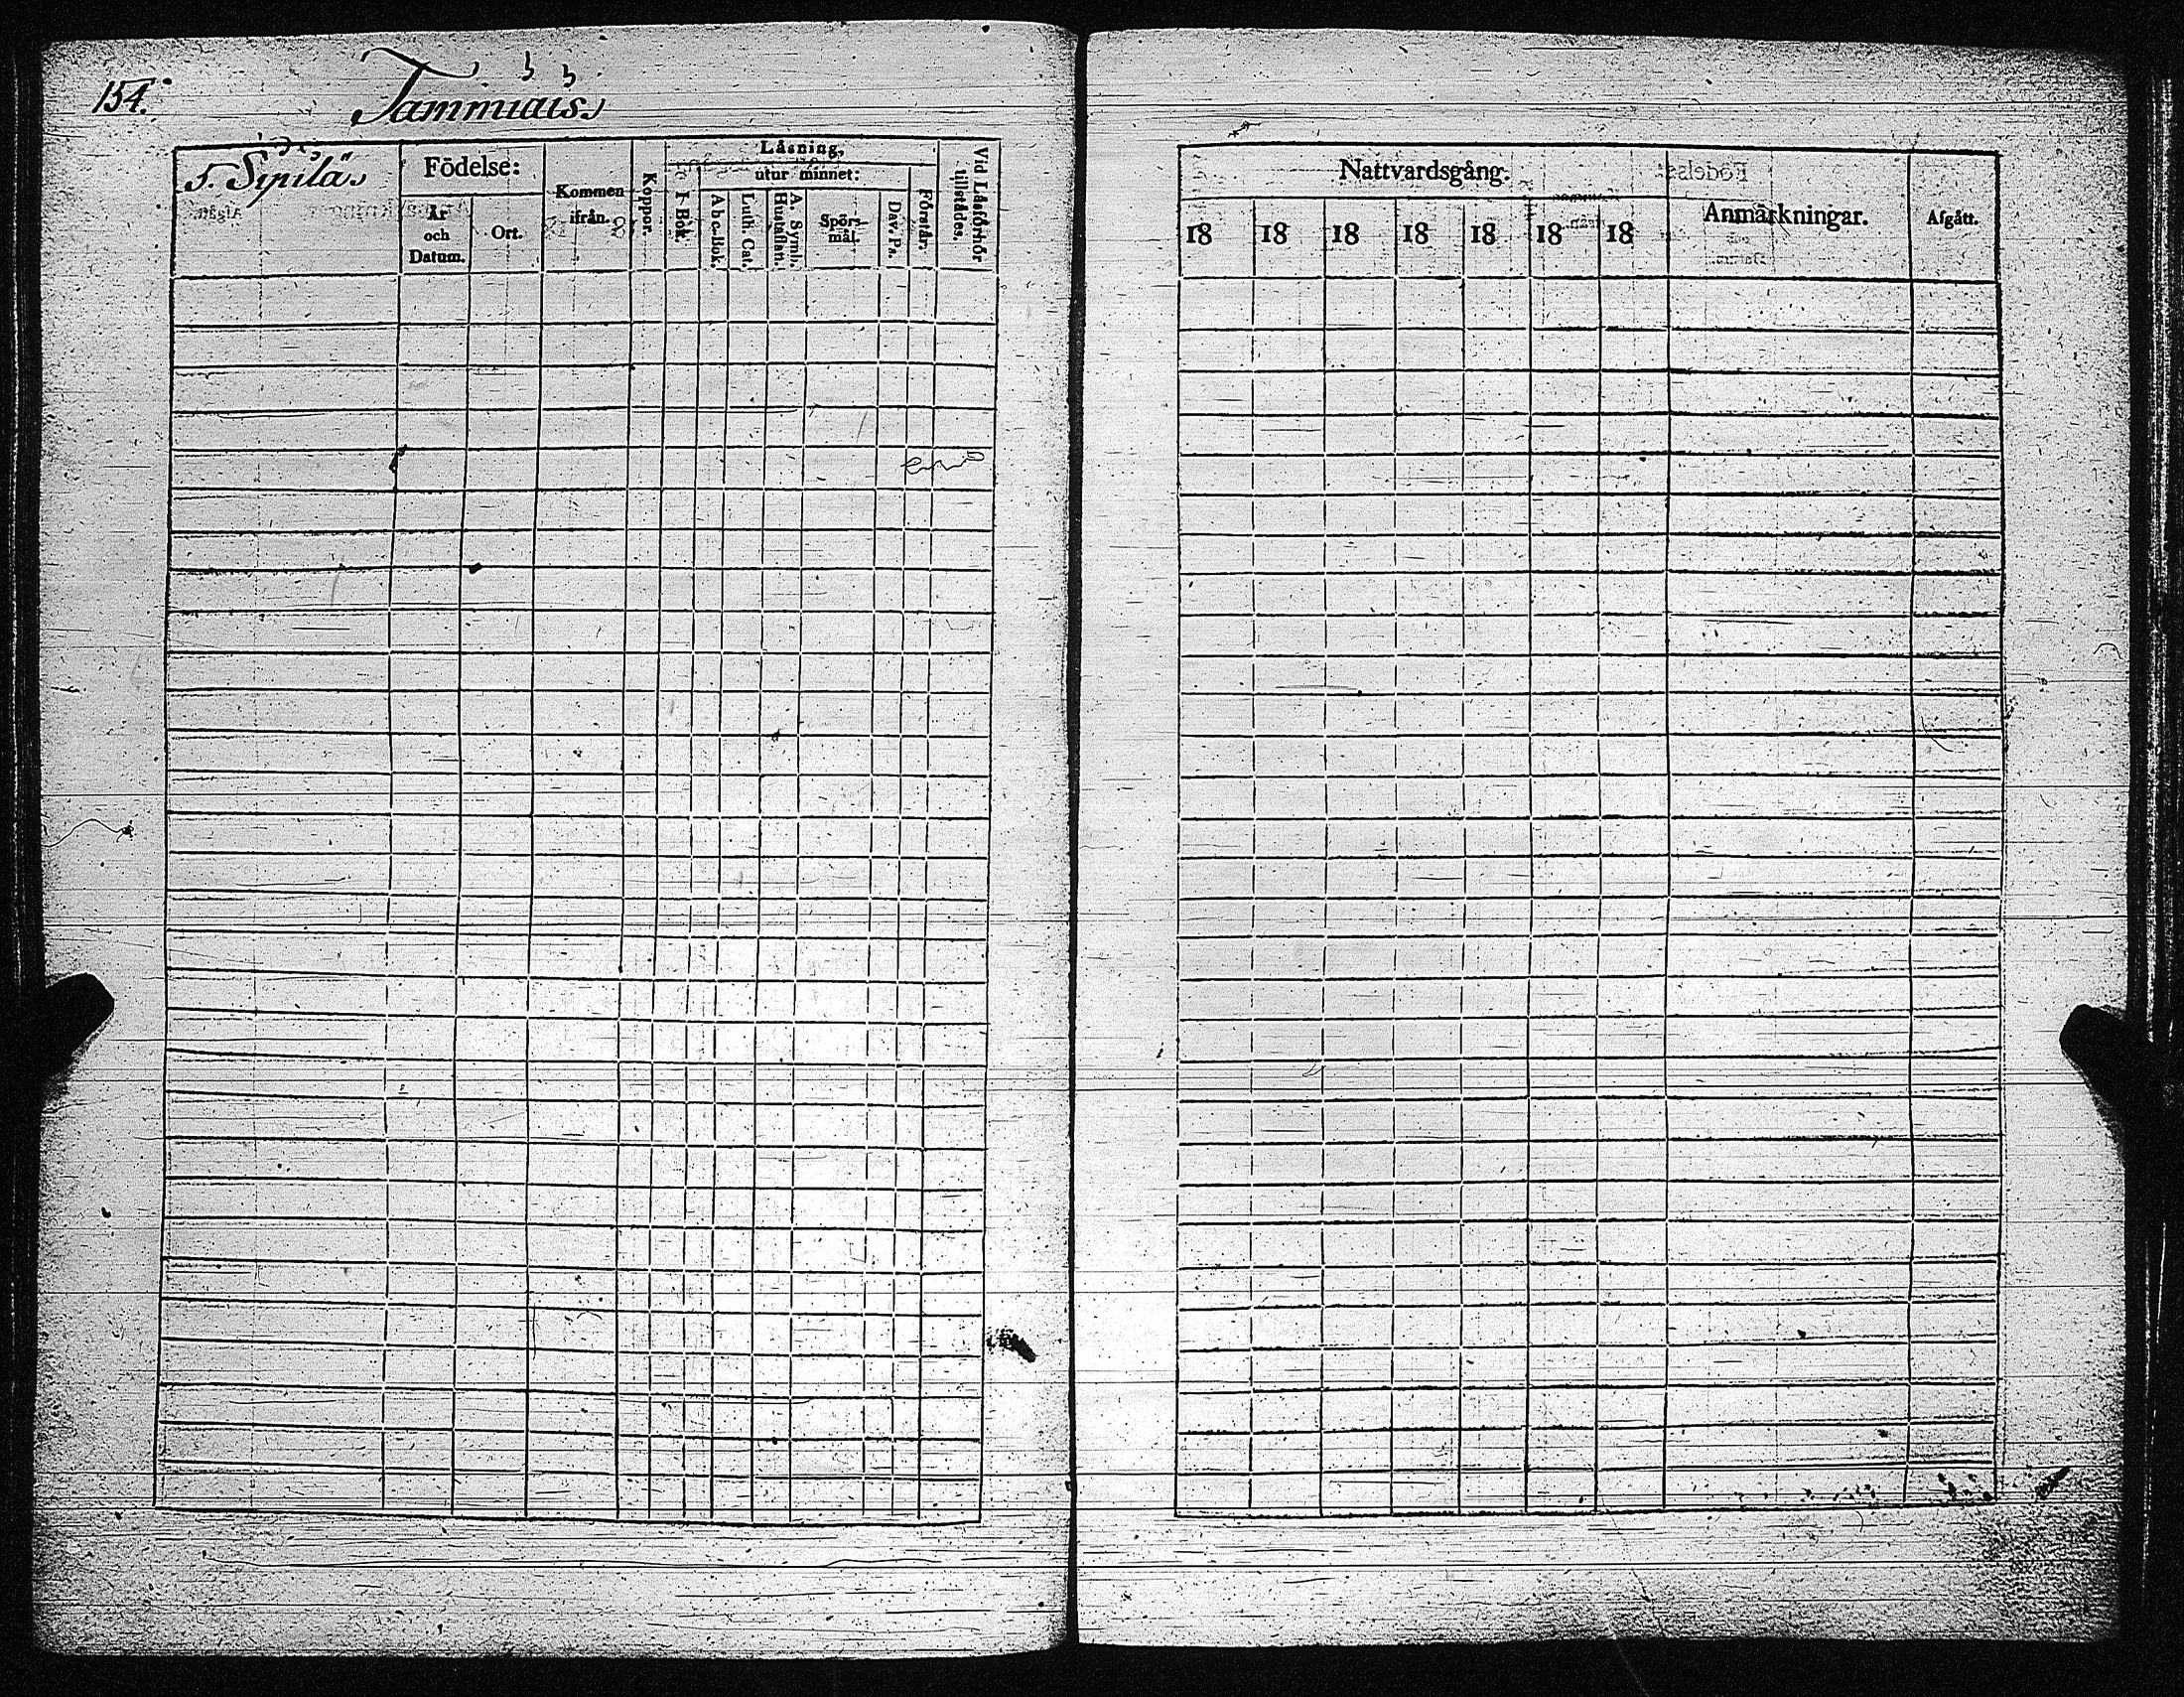 154.
Tammiais
5. Sipilä
Födelse:
År och Datum.
Ort.
Kommen ifrån.
Koppor.
Läsning,
utur minnet:
I Bok.
Abc-Bok.
Luth. Cat.
A. Symb. Hustaflan.
Spörs-mål.
Dav. Ps.
Förstår.
Vid Läsförhör tillstädes.
Nattvardsgång.
18 18 18 18 18 18 18
Anmärkningar.
Afgått.